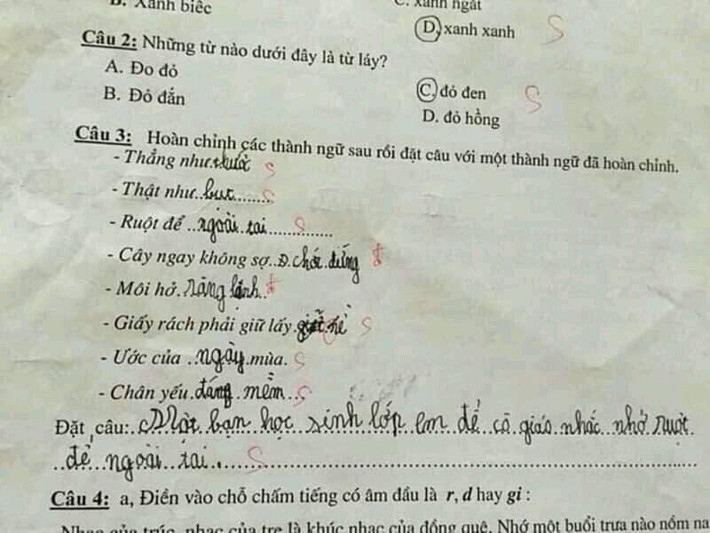 B. Xanh biếc
C. xanh ngát
D, xanh xanh S
Câu 2: Những từ nào dưới đây là từ láy?
A. Đo đỏ
C. đỏ đen S
B. Đỏ đắn
D. đỏ hồng
Câu 3: Hoàn chỉnh các thành ngữ sau rồi đặt câu với một thành ngữ đã hoàn chỉnh.
- Thẳng như thước S
- Thật như..bục........ S
- Ruột để ..ngoài.tai.............. S
- Cây ngay không sợ..Đ.chết.đứng đ
- Môi hở.răng lạnh.. đ
- Giấy rách phải giữ lấy. S
- Ước của ..ngày.mùa. S
- Chân yếu.đáng.mềm... S
Đặt câu:..Một.bạn.học.sinh lớp em để cô giáo nhắc nhở ruột
để ngoài tai. S
Câu 4: a, Điền vào chỗ chấm tiếng có âm đầu là r, d hay gi :
Nhạc của trúc, nhạc của tre là khúc nhạc của đồng quê. Nhớ một buổi trưa nào nồm na